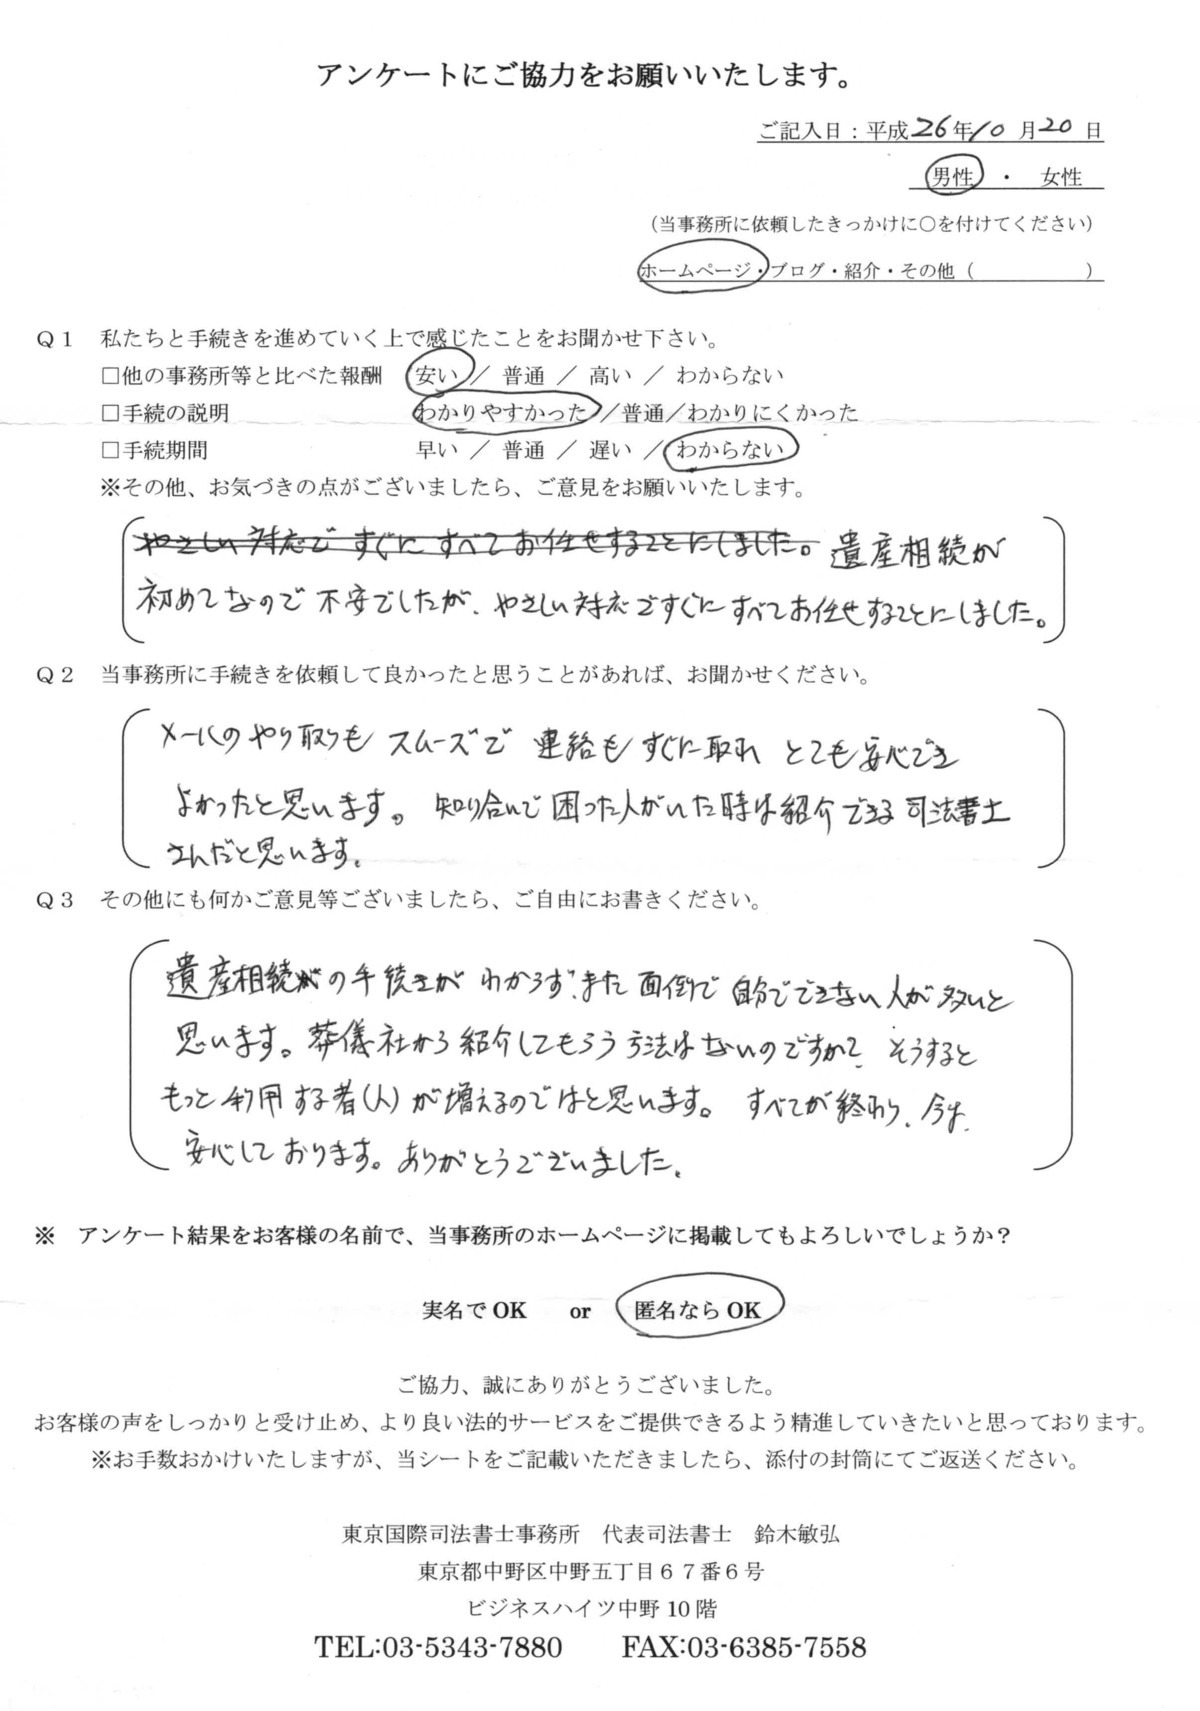 アンケートにご協力をお願いいたします。
ご記入日：平成26年10月20日
男性 ・ 女性
（当事務所に依頼したきっかけに○を付けてください）
ホームページ・ブログ・紹介・その他（ ）
Ｑ１ 私たちと手続きを進めていく上で感じたことをお聞かせ下さい。
□他の事務所等と比べた報酬 安い ／ 普通 ／ 高い ／ わからない
□手続の説明 わかりやすかった ／普通／わかりにくかった
□手続期間 早い ／ 普通 ／ 遅い ／ わからない
※その他、お気づきの点がございましたら、ご意見をお願いいたします。
やさしい対応ですぐにすべてお任せすることにしました。遺産相続が
初めてなので不安でしたが、やさしい対応ですぐにすべてお任せすることにしました。
Ｑ２ 当事務所に手続きを依頼して良かったと思うことがあれば、お聞かせください。
メールのやり取りもスムーズで連絡もすぐに取れとても安心でき
よかったと思います。知り合いで困った人がいた時は紹介できる司法書士
さんだと思います。
Ｑ３ その他にも何かご意見等ございましたら、ご自由にお書きください。
遺産相続の手続きがわからず、また面倒で自分でできない人が多いと
思います。葬儀社から紹介してもらう方法はないのですか？そうすると
もっと利用する者（人）が増えるのではと思います。すべてが終わり、今は、
安心しております。ありがとうございました。
※ アンケート結果をお客様の名前で、当事務所のホームページに掲載してもよろしいでしょうか？
実名で OK or 匿名なら OK
ご協力、誠にありがとうございました。
お客様の声をしっかりと受け止め、より良い法的サービスをご提供できるよう精進していきたいと思っております。
※お手数おかけいたしますが、当シートをご記載いただきましたら、添付の封筒にてご返送ください。
東京国際司法書士事務所 代表司法書士 鈴木敏弘
東京都中野区中野五丁目６７番６号
ビジネスハイツ中野 10 階
TEL:03-5343-7880 FAX:03-6385-7558